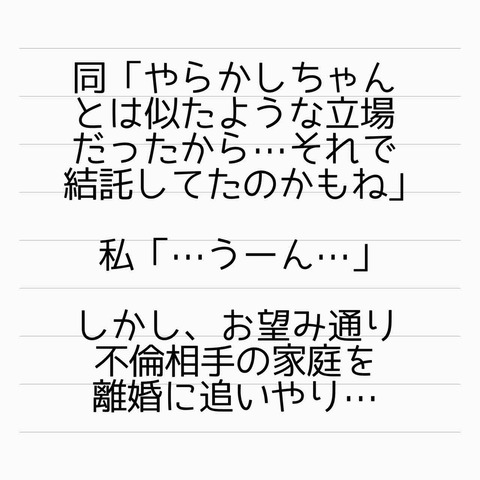 同「やらかしちゃん
とは似たような立場
だったから…それで
結託してたのかもね」
私「…うーん…」
しかし、お望み通り
不倫相手の家庭を
離婚に追いやり…